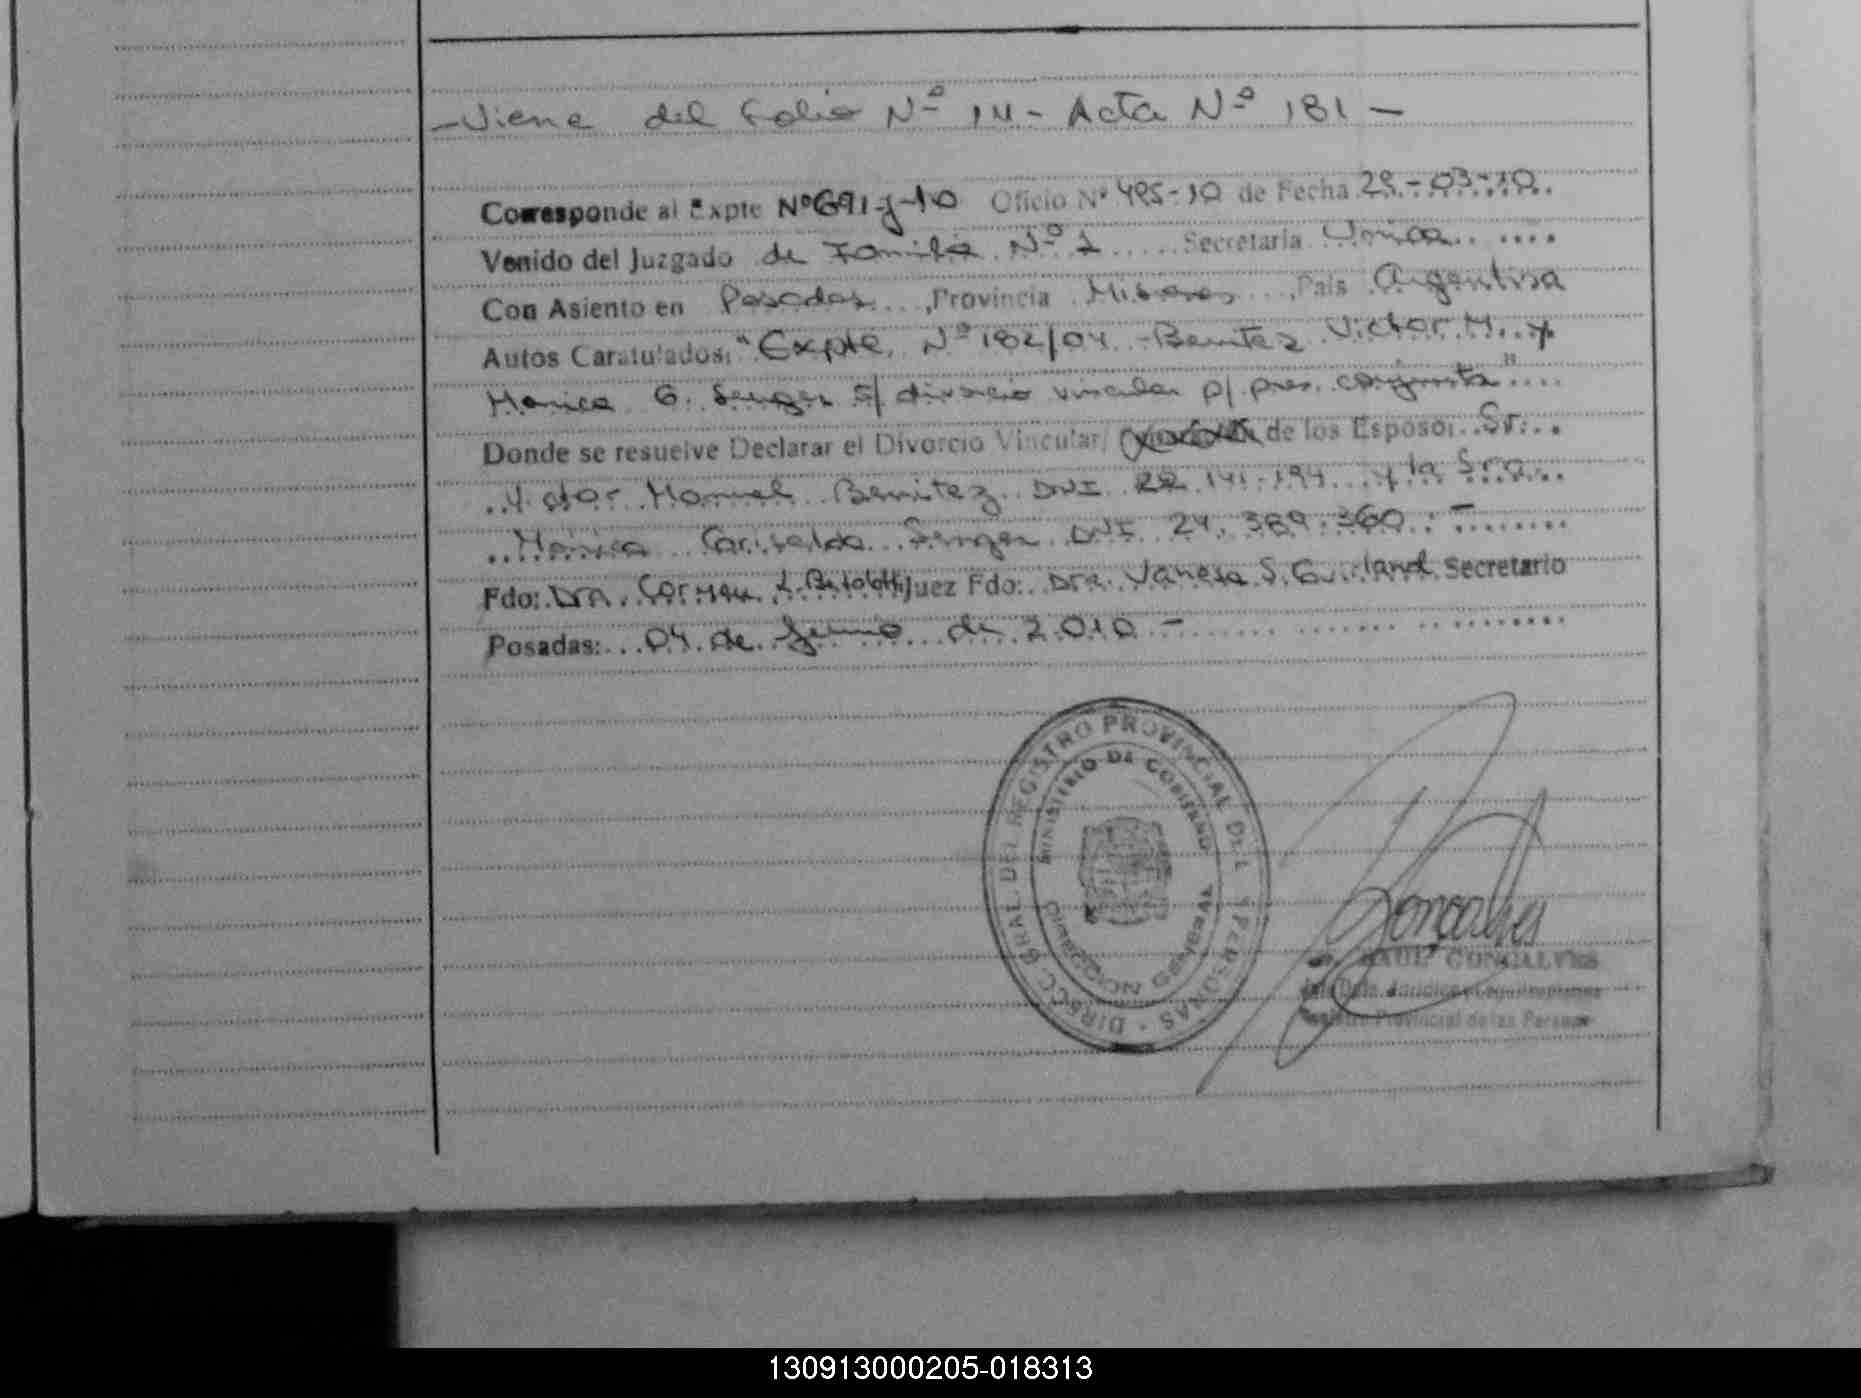 -Viene del Folio Nº 14- Acta Nº 181-
Corresponde al Expte Nº 691-j-10 Oficio Nº 485-10 de Fecha 29-03-10
Venido del Juzgado de Familia Nº 1 Secretaria Unica
Con Asiento en Posadas, Provincia Misiones, Pais Argentina
Autos Caratulados: "Expte. Nº 182/04 - Benitez Victor M. y
Monica G. Senger s/ divorcio vincular p/ pres. conjunta"
Donde se resuelve Declarar el Divorcio Vincular/ de los Esposo: Sr.
Victor Manuel Benitez DNI 22.141.194 y la Sra.
Monica Griselda Senger DNI 24.389.360.-
Fdo: Dra. Carmen L. Bertolotti Juez Fdo: Dra. Vanesa S. Guirland Secretario
Posadas: 04 de Junio de 2010-
DIRECC. GRAL. DEL REGISTRO PROVINCIAL DE L PERSONAS
MINISTERIO DE GOBIERNO
DIRECCION GENERAL
Goncalves
RAUL GONCALVES
Jefe Dpto. Jurídico
Registro Provincial de las Personas
130913000205-018313